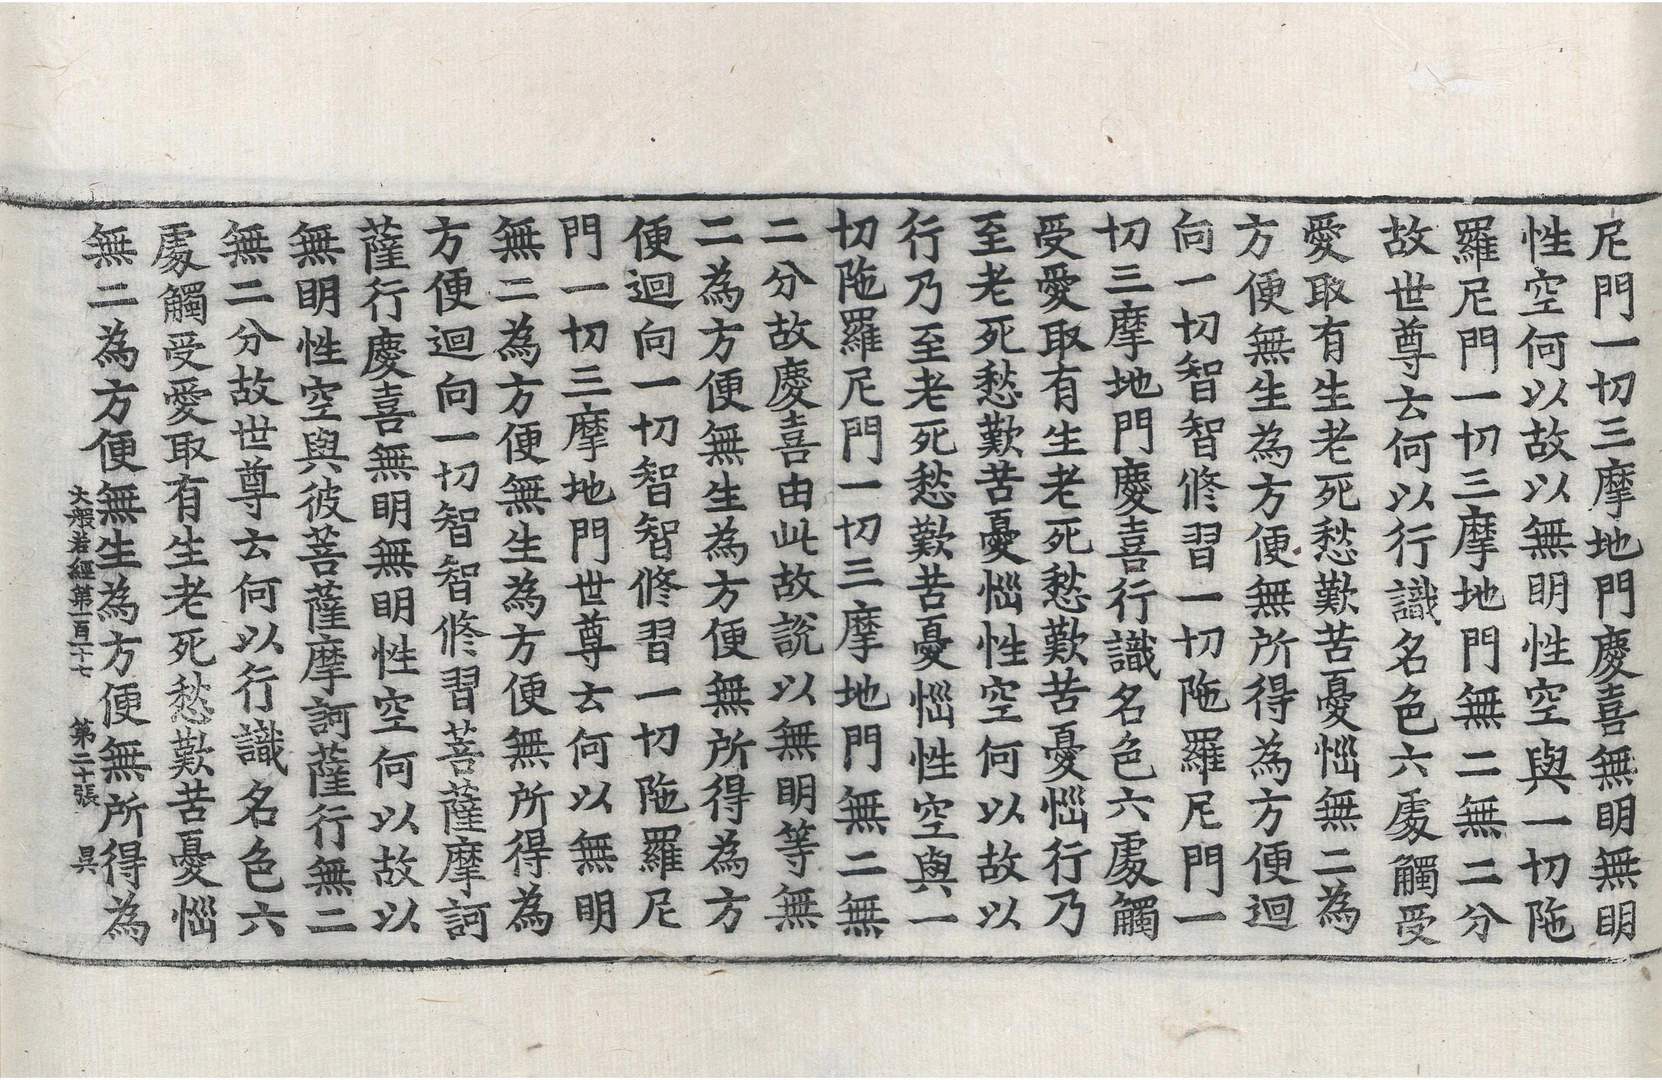 尼門一切三摩地門慶喜無明無明
性空何以故以無明性空與一切陁
羅尼門一切三摩地門無二無二分
故世尊云何以行識名色六處觸受
愛取有生老死愁歎苦憂惱無二為
方便無生為方便無所得為方便迴
向一切智智修習一切陁羅尼門一
切三摩地門慶喜行識名色六處觸
受愛取有生老死愁歎苦憂惱行乃
至老死愁歎苦憂惱性空何以故以
行乃至老死愁歎苦憂惱性空與一
切陁羅尼門一切三摩地門無二無
二分故慶喜由此故說以無明等無
二為方便無生為方便無所得為方
便迴向一切智智修習一切陁羅尼
門一切三摩地門世尊云何以無明
無二為方便無生為方便無所得為
方便迴向一切智智修習菩薩摩訶
薩行慶喜無明無明性空何以故以
無明性空與彼菩薩摩訶薩行無二
無二分故世尊云何以行識名色六
處觸受愛取有生老死愁歎苦憂惱
無二為方便無生為方便無所得為
大般若經第一百二十七 第二十張 昃